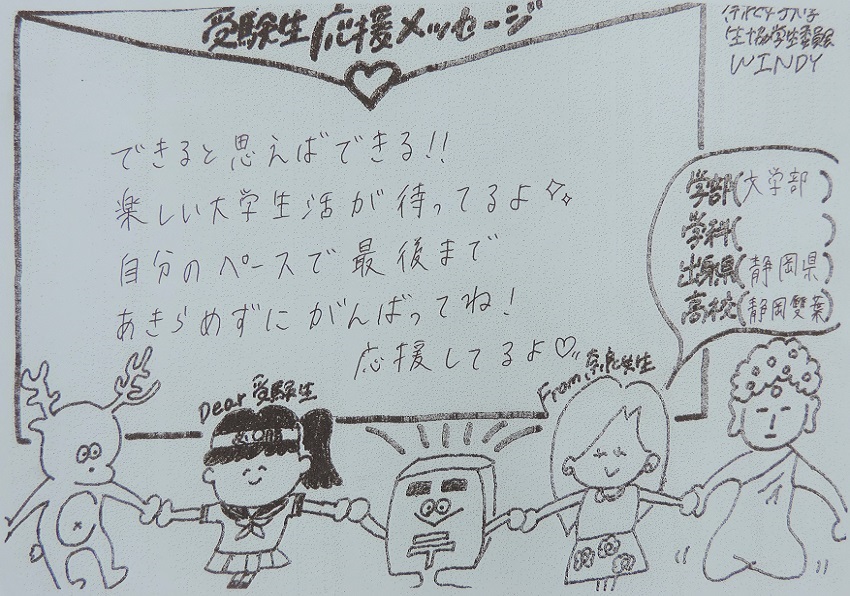 受験生応援メッセージ
生協学生委員会
WINDY
できると思えばできる!!
楽しい大学生活が待ってるよ
自分のペースで最後まで
あきらめずにがんばってね!
応援してるよ♡
学部(文学部)
学科(　　)
出身県(静岡県)
高校(静岡雙葉)
Dear 受験生
From 奈良女生